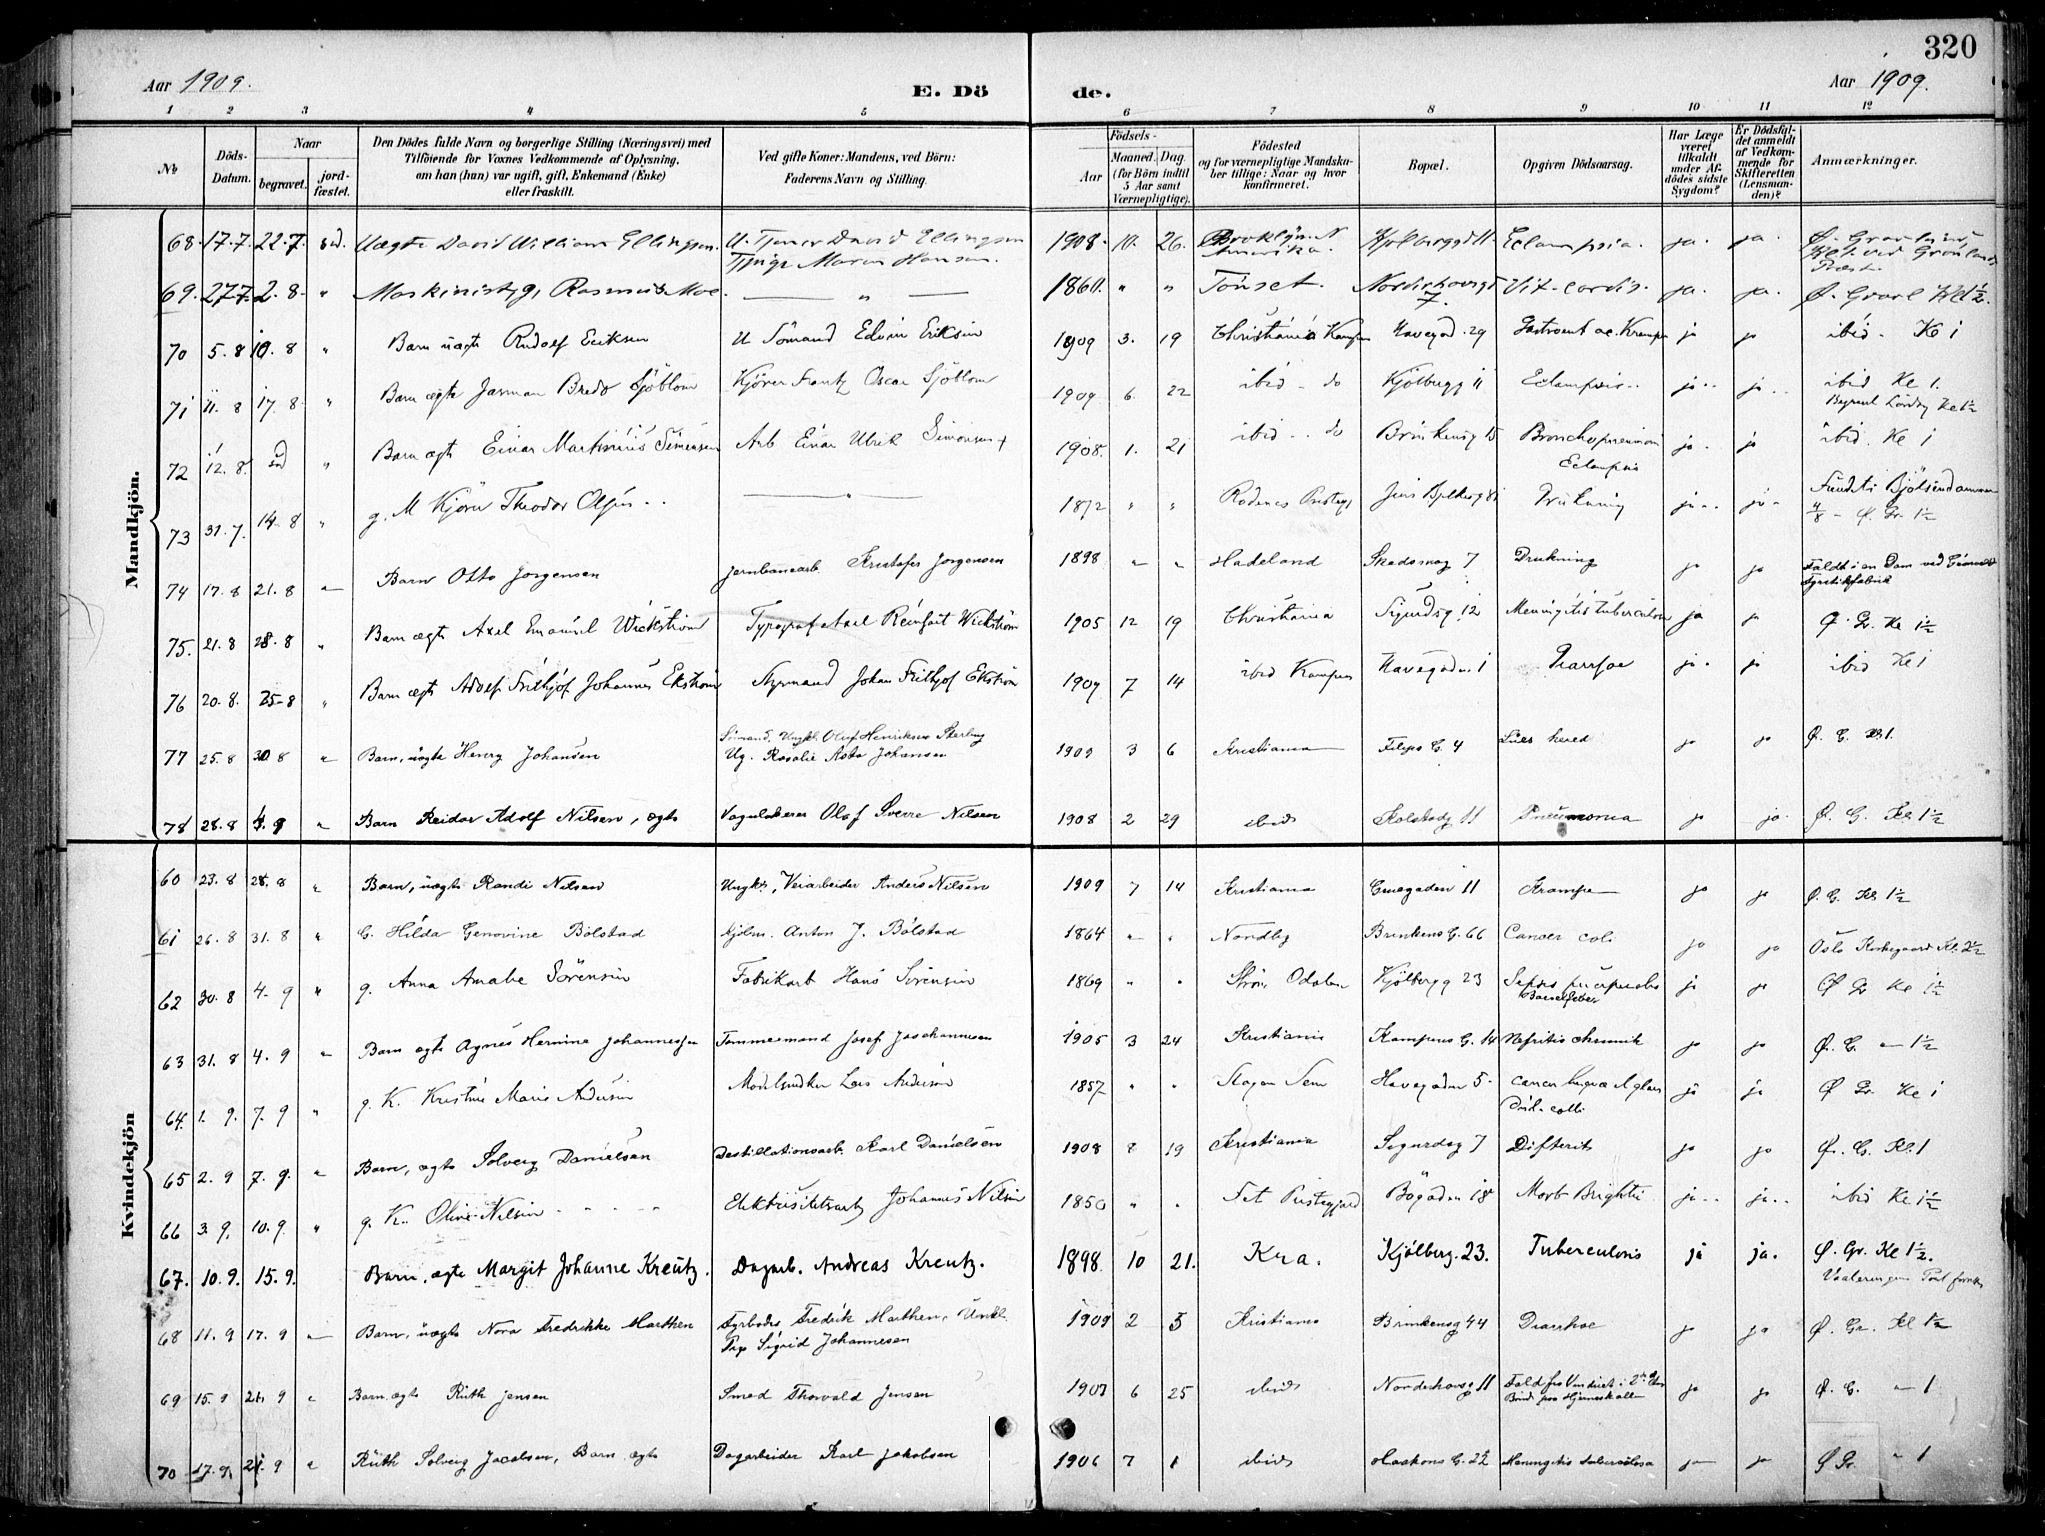 320
Aar 1909. E. Dö de. Aar 1909.
1 2 3 4 5 6 7 8 9 10 11 12
No
Döds-Datum.
Naar
begravet. jord-fæstet.
Den Dödes fulde Navn og borgerlige Stilling (Næringsvei) med
Tilföiende for Voxnes Vedkommende af Oplysning,
om han (hun) var ugift, gift, Enkemand (Enke)
eller fraskilt.
Ved gifte Koner: Mandens, ved Börn:
Faderens Navn og Stilling.
Födsels-
Aar Maaned. Dag.
(for Börn indtil
5 Aar samt
Værnepligtige).
Födested
og for værnepligtige Mandska-
ber tillige: Naar og hvor
konfirmeret.
Bopæl.
Opgiven Dödsaarsag.
Har Læge
været
tilkaldt
under Af-
dödes sidste
Sygdom?
Er Dödsfal-
det anmeldt
af Vedkom-
mende for
Skifteretten
(Lensman-
den)?
Anmærkninger.
Mandkjön.
68. 17.7. 22.7. Uægte David William Ellingsen. U. Tjener David Ellingsen 1908. 10. 26. Broklyn. N Eclampsia. ja. ja.
Tjpige Maren Hansen. Amerika.
69. 27.7. 2.8. " Maskinist, g, Rasmus Moe. — " — 1860. " " Tönset. Vit. cordis. ja. ja.
7.
70 5.8 10.8 " Barn uægte Rudolf Eriksen U Sömand Edvin Eriksen 1909 3. 19 Christiania Kampen Havegad. 29 ja ja ibid. Kl 1
71 11.8 17.8 " Barn ægte Bredo Sjöblom Kjörer Frantz Oscar Sjöblom 1909. 6. 22 ibid - do Kjölbergg 11 Eclampsia.. ja.. ja.. ibid Kl 1.
72 12.8. " Barn ægte Einar Martinius Simensen Arb Einar Ulrik Simonsen 1908. 1. 21 ibid.. do Brinkensg 15 Bronchopneumoni ja. ja ibid. Kl 1
Eclampsia
73 31.7. 14.8 " g. M Kjörer Theodor Olsen.. — " — 1872 " " Rödenes Prestegj Drukning ja.. ja.
74 17.8 21.8 Barn Otto Jorgensen Jernbanearb. Kristofer Jorgensen 1898 " " Hadeland Skedsmog 7 Drukning ja ja Faldt i en Dam ved
75. 21.8 28.8 " Barn ægte Axel Emanuel Wickström Typograf Axel Reinhart Wickström 1905 12 19 Christiania Sigurdsg. 12 Meningitis tuberculosa ja ja Ø. Gr. Kl 1½
76 20.8. 25.8 " Barn ægte Adolf Frithjof Johannes Ekström Johan Frithjof Ekström 1909 7 14 ibid Kampen Havegaden. 1 Diarrhoe ja. ja ibid Kl 1
77 25.8 30.8 " Barn, uægte Henry Johansen Sömand. Ungk. Oluf Henriksen 1909 3 6 Kristiania Filips G. 4 Lues hered ja ja Ø. G. Kl 1.
Ug. Rosalie Asta Johansen
78 28.8 4.9 " Barn Reidar Adolf Nilsen, ægte Vognlakerer Olaf Sverre Nilsen 1908 2 29 ibid Kolstadg 11 Pneumonia ja ja. Ø. G. Kl. 1½
Kvindekjön
60 23.8 28.8 " Barn, uægte Randi Nilsen Ungk., Veiarbeider Anders Nilsen 1909 7 14 Kristiania 11 Krampe ja ja Ø. G. Kl 1½
61 26.8 31.8 " G. Hilda Genovine Bölstad Anton J. Bölstad 1864 " " Nordby Brinkens G. 66 Cancer coli ja ja Oslo Kirkegaard Kl. 2½
62 30.8 4.9 " g. Anna Amalie Sörensen Fabrikarb Hans Sörensen 1869 " " Odalen Kjölbergg 23 Sepsis puerperalis ja ja Ø Gr Kl 1½
Barselfeber
63 31.8 4.9 " Barn ægte Agnes Hermine Johannesen Tömmermand Josef Johannesen 1905 3 24 Kristiania Kampens G. 14 Nefritis chronik ja ja Ø. G. " 1½
64. 1.9. 7.9 " g. K. Kristine Marie Andersen Modelsnedker Lars Andersen 1857 " " Slagen Sem Havegaden 5 ja ja Ø Gr. Kl 1
65 2.9 7.9. " Barn, ægte Solveig Danielsen Destillationsarb. Karl Danielsen 1908 8 19 Kristiania Sigurdsg 7 Difterit ja ja Ø. G. Kl. 1
66 3.9. 10.9. " g. K. Oline Nilsen Johannes Nilsen 1850 " " Prestegjeld Bögaden 18 Morb Brightii ja.. ja.. ibid Kl. 1½
67. 10.9. 15.9. Barn, ægte Margit Johanne Kreutz. Dagarb. Andreas Kreutz. 1898 10 21. Kra. Kjölberg. 23. Tuberculosis ja ja. Ø. Gr. Kl 1½.
68 11.9 17.9 Barn, uægte Nora Fredrikke Marthen Fyrböder Fredrik Marthen, Unkl. 1909 2 5 Kristiania Brinkensg 44 Diarrhoe ja ja Ø. Gr. Kl 1½
Pige Sigrid Johannesen
69 15.9 21.9 " Barn, ægte Ruth Jensen Smed Thorvald Jensen 1907 6 25 ibid Norderhovsg 11 Fald fra Vinduet i 2den Etg ja ja Ø. G. " 1
Brud paa Hjerneskallen
70 17.9. 21.9 " Ruth Solveig Jacobsen, Barn ægte Dagarbeider Karl Jakobsen 1906 7 1 ibid Haakons G. 22 Meningitis tuberculosa ja ja Ø Gr. " 1